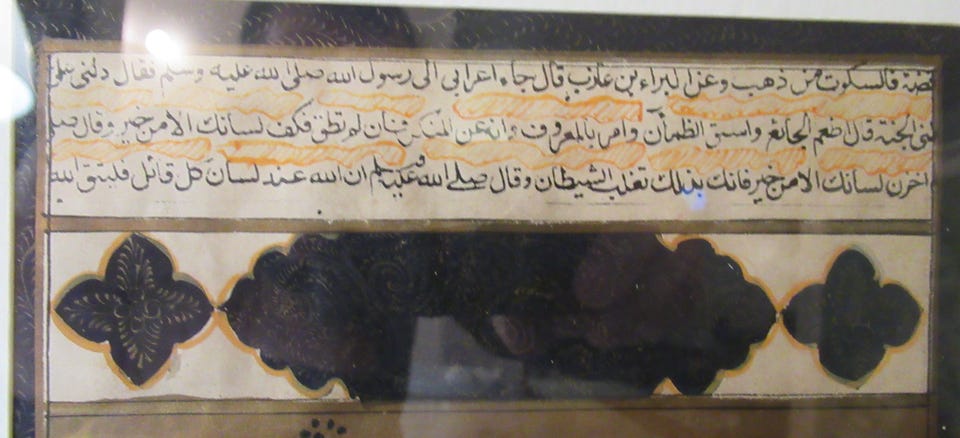 فضة فالسكوت من ذهب وعن لبراء بن عازب قال جاء اعرابي الى رسول الله صلى الله عليه وسلم فقال دلني على
الجنة قال اطعم الجائع واسق الظمآن وامر بالمعروف وانه عن المنكر فان لم تطق فكف لسانك الا من خير وقال
اخزن لسانك الا من خير فانك بذلك تغلب الشيطان وقال صلى الله عليه وسلم ان الله عند لسان كل قائل فليتق الله